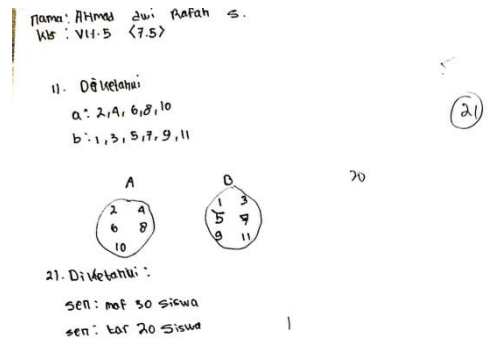 nama: AHmad dwi Rafah S.
kls : VII.5 <7.5>
11. Diketahui
a : 2,4, 6,8,10
b : 1, 3, 5,7, 9,11
21
A B 20
2 4 1 3
6 8 5 7
10 9 11
21. Diketahui :
sen : mat 30 siswa
sen : tar 20 siswa